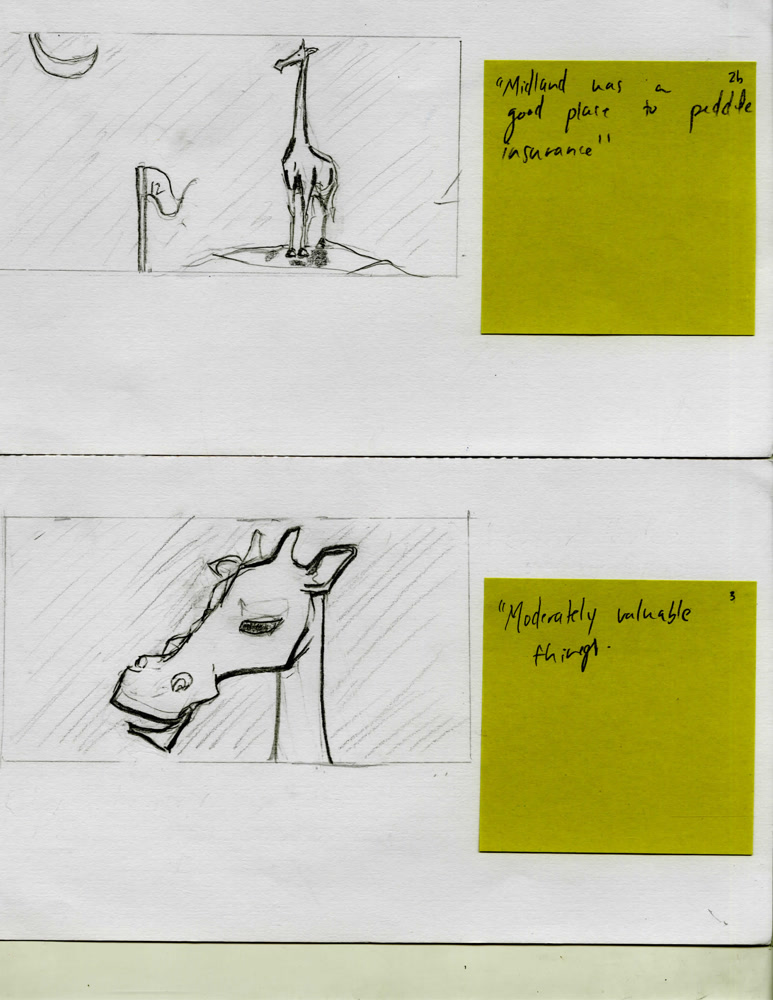 2b
"Midland was a
good place to peddle
insurance"
12
3
"Moderately valuable
things.